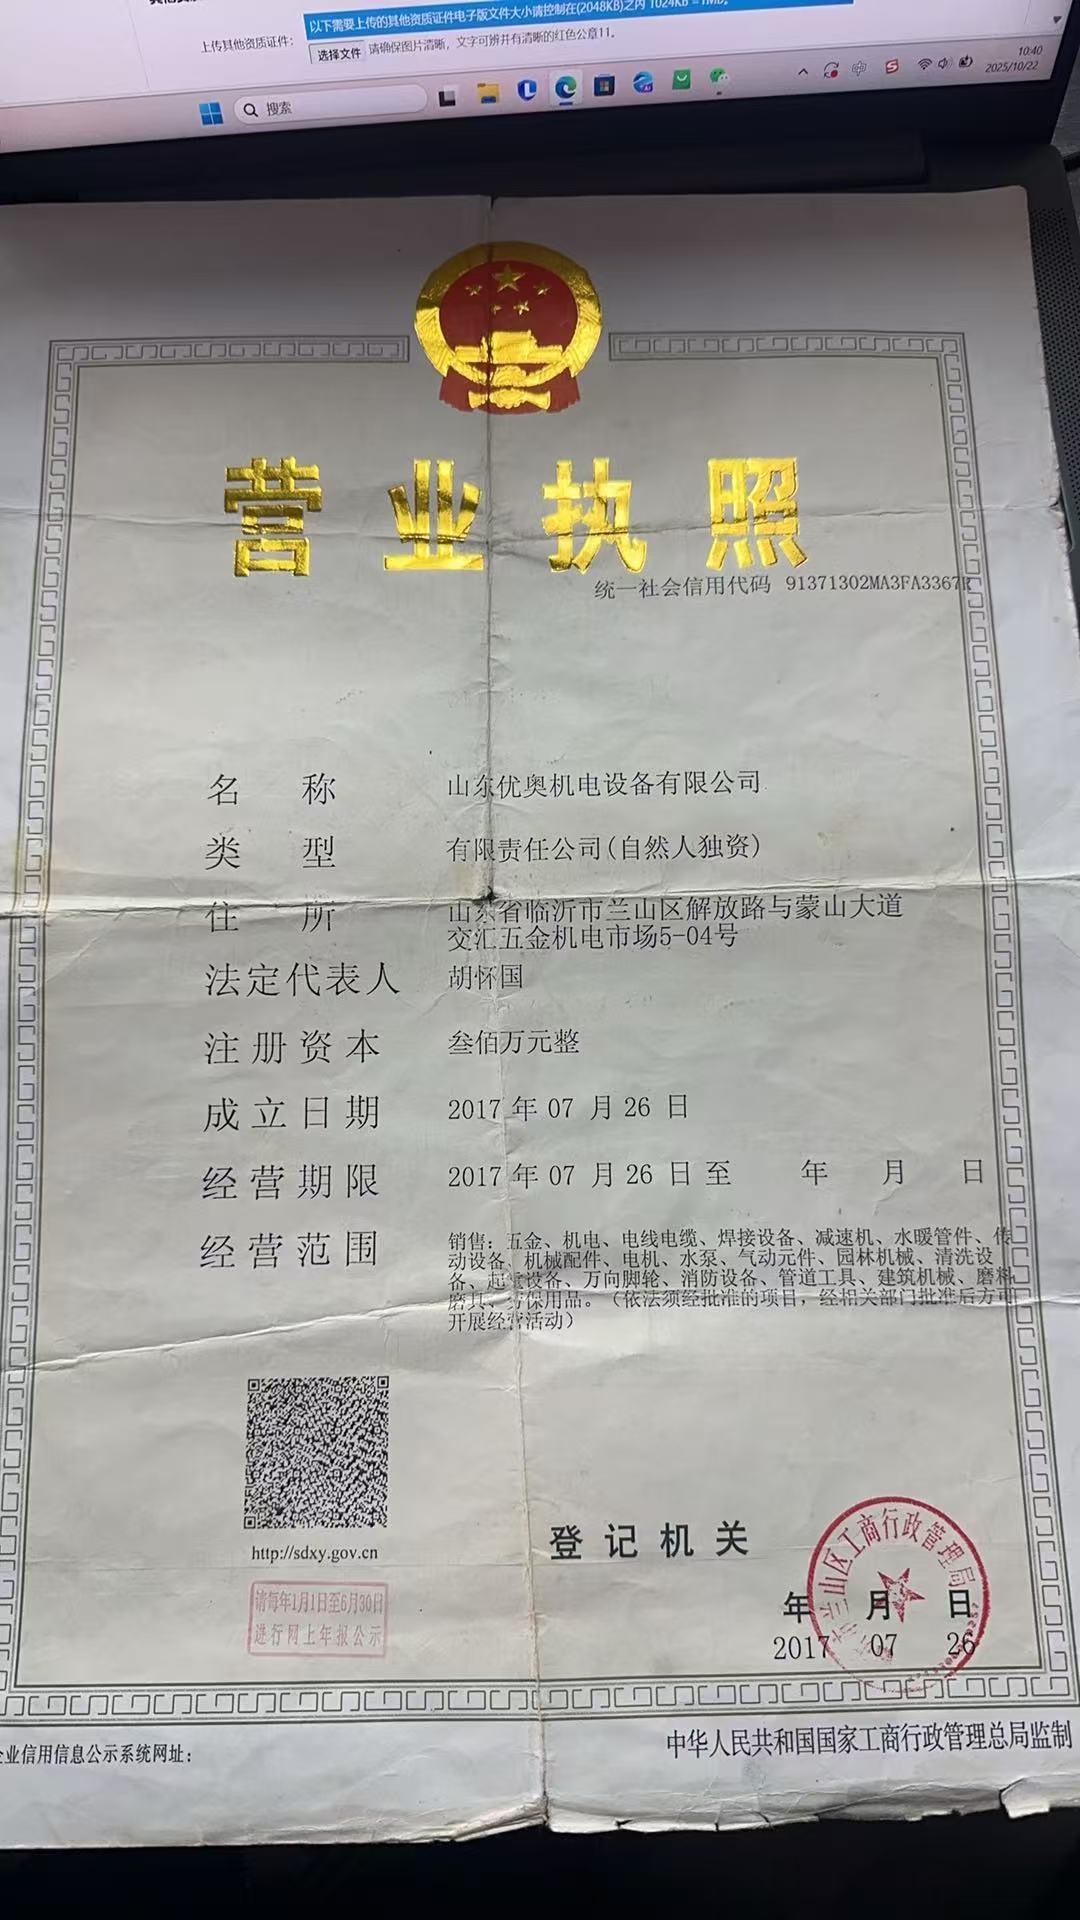 以下需要上传的其他资质证件电子版文件大小请控制在(2048KB)之内 1024KB=1MB。
上传其他资质证件：
选择文件 请确保图片清晰，文字可辨并有清晰的红色公章11。
搜索
10:40
2025/10/22
营业执照
统一社会信用代码 91371302MA3FA3367
名称 山东优奥机电设备有限公司
类型 有限责任公司(自然人独资)
住所 山东省临沂市兰山区解放路与蒙山大道
交汇五金机电市场5-04号
法定代表人 胡怀国
注册资本 叁佰万元整
成立日期 2017年07月26日
经营期限 2017年07月26日至 年 月 日
经营范围 销售：五金、机电、电线电缆、焊接设备、减速机、水暖管件、传
动设备、机械配件、电机、水泵、气动元件、园林机械、清洗设
备、起重设备、万向脚轮、消防设备、管道工具、建筑机械、磨料
磨具、劳保用品。（依法须经批准的项目，经相关部门批准后方可
开展经营活动）
http://sdxy.gov.cn
请每年1月1日至6月30日
进行网上年报公示
登记机关
兰山区工商行政管理局
年 月 日
2017 07 26
企业信用信息公示系统网址：
中华人民共和国国家工商行政管理总局监制